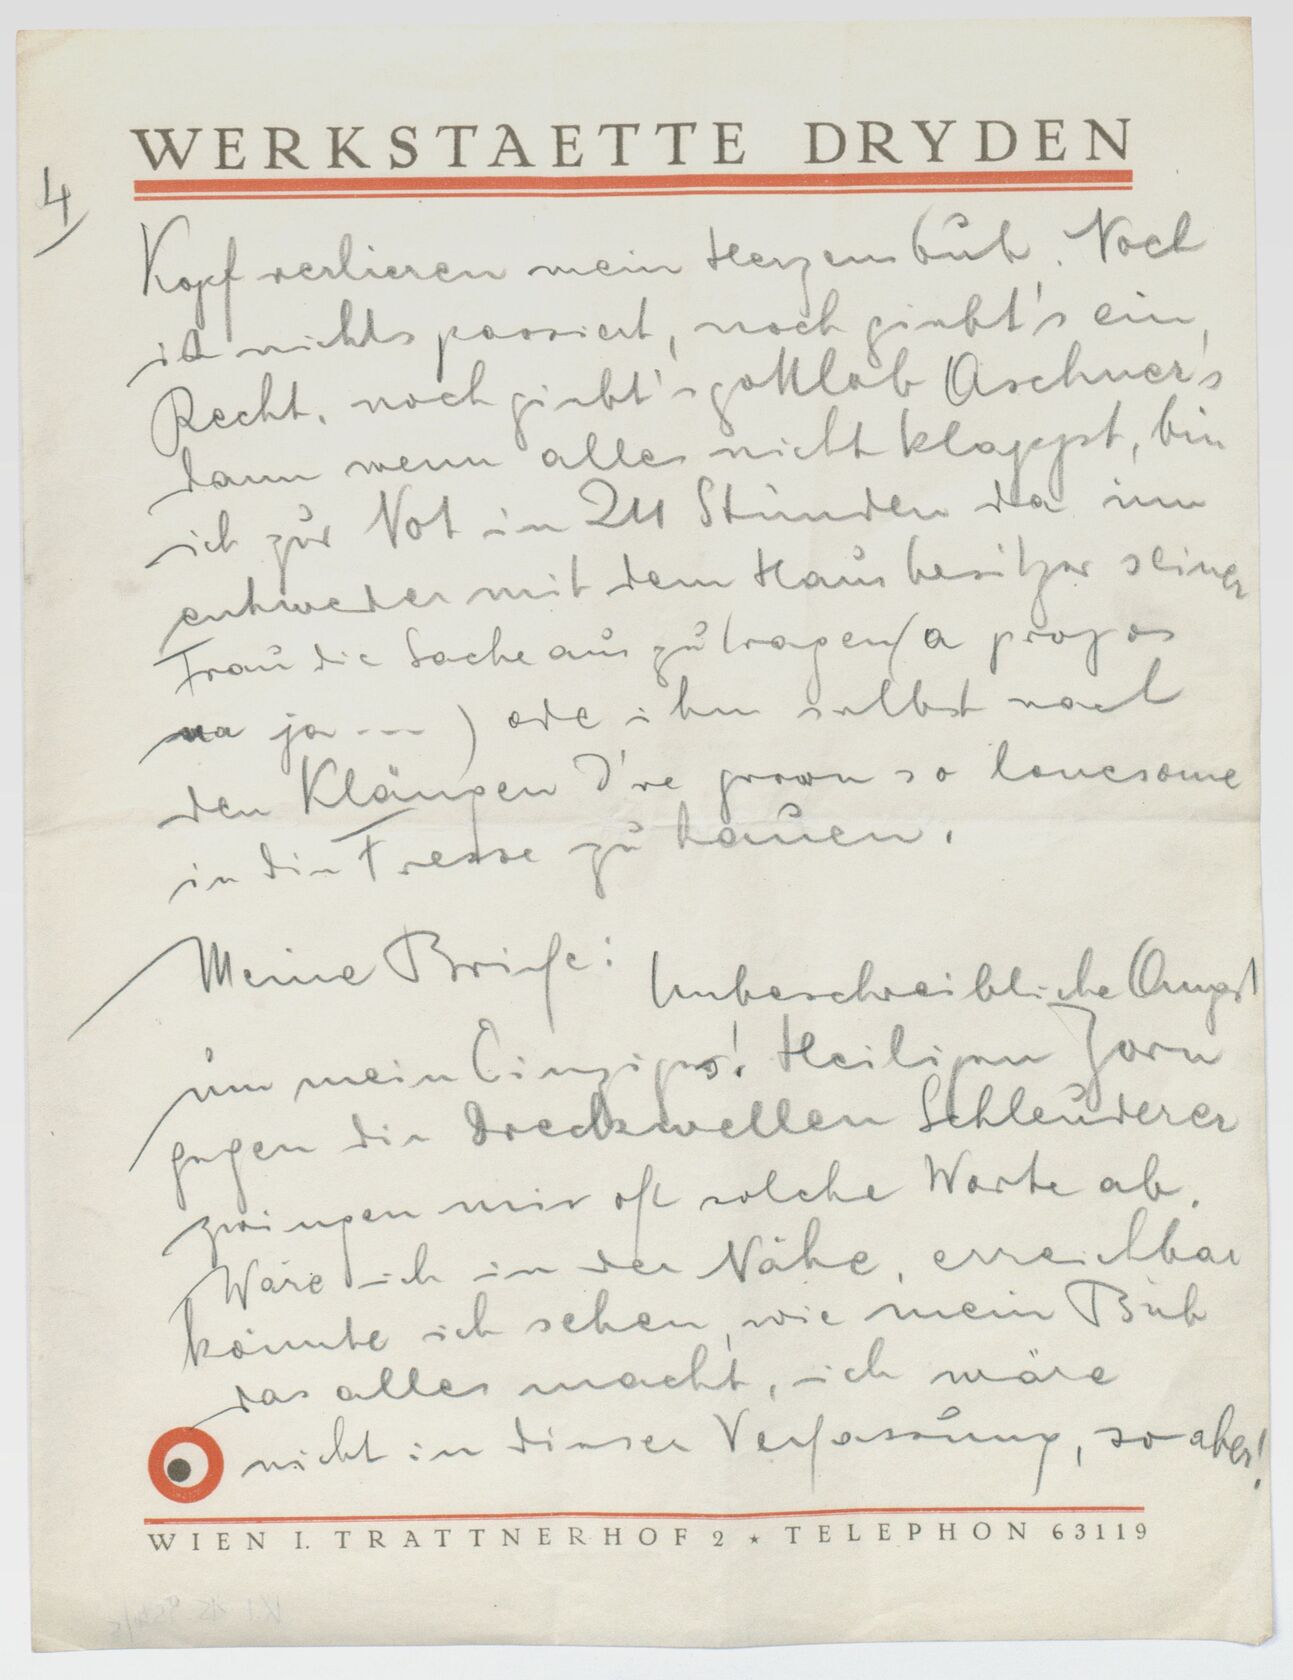 WERKSTAETTE DRYDEN
4
Kopf verlieren mein Herzensbub. Noch
ist nichts passiert, noch giebt's ein
Recht, noch giebt's gottlob Aschner's
dann wenn alles nicht klappt, bin
ich zur Not in 24 Stunden da um
entweder mit dem Hausbesitzer seiner
Frau die Sache auszutragen (a propos
na ja ...) oder ihm selbst nach
den Klängen I've grown so lonesome
in die Fresse zu hauen.
Meine Briefe: Unbeschreibliche Angst
um mein Einziges! Heiligen Zorn
gegen die Dreckswellen Schleuderer
zwingen mir oft solche Worte ab.
Wäre ich in der Nähe, erreichbar
könnte ich sehen, wie mein Bub
das alles macht, ich wäre
nicht in dieser Verfassung, so aber!
WIEN I. TRATTNERHOF 2 ★ TELEPHON 63119